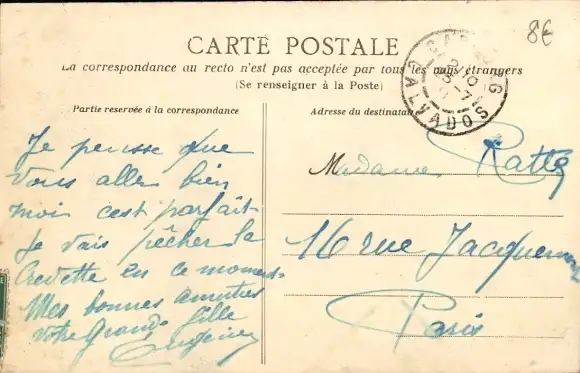 8€
CARTE POSTALE
La correspondance au recto n'est pas acceptée par tous les pays étrangers
(Se renseigner à la Poste)
Partie reservée à la correspondance
Adresse du destinataire
CALVADOS
Je pensse que
Vous allez bien
moi c'est parfait
Je vais pêcher la
Crevette en ce moment
Mes bonnes amitiés
votre grande fille
Madame Ratté
16 rue
Paris